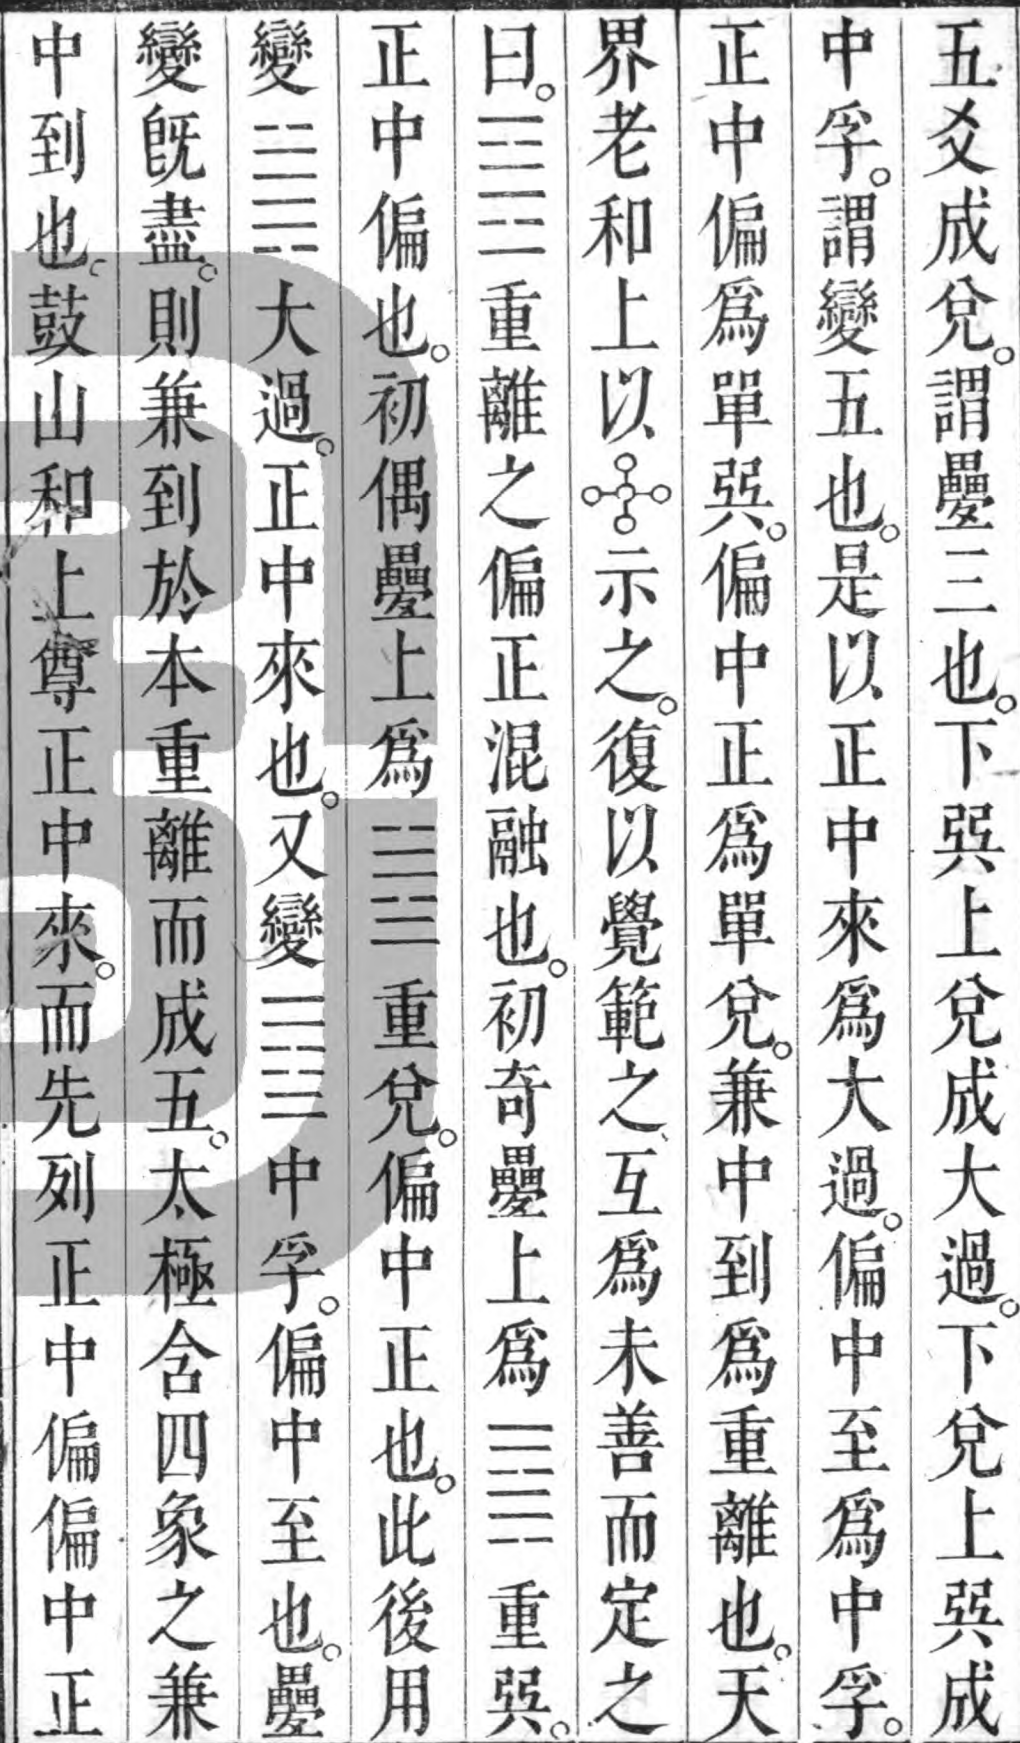 五爻成兌。謂疊三也。下㢲上兌成大過。下兌上㢲成
中孚。謂變五也。是以正中來爲大過。偏中至爲中孚。
正中偏爲單㢲。偏中正爲單兌。兼中到爲重離也。天
界老和上以示之。復以覺範之互爲未善而定之
曰。䷝重離之偏正混融也。初奇疊上爲䷸重㢲。
正中偏也。初偶疊上爲䷹重兌。偏中正也。此後用
變䷛大過。正中來也。又變䷼中孚。偏中至也。疊
變既盡。則兼到於本重離而成五。太極含四象之兼
中到也。鼓山和上尊正中來。而先列正中偏偏中正